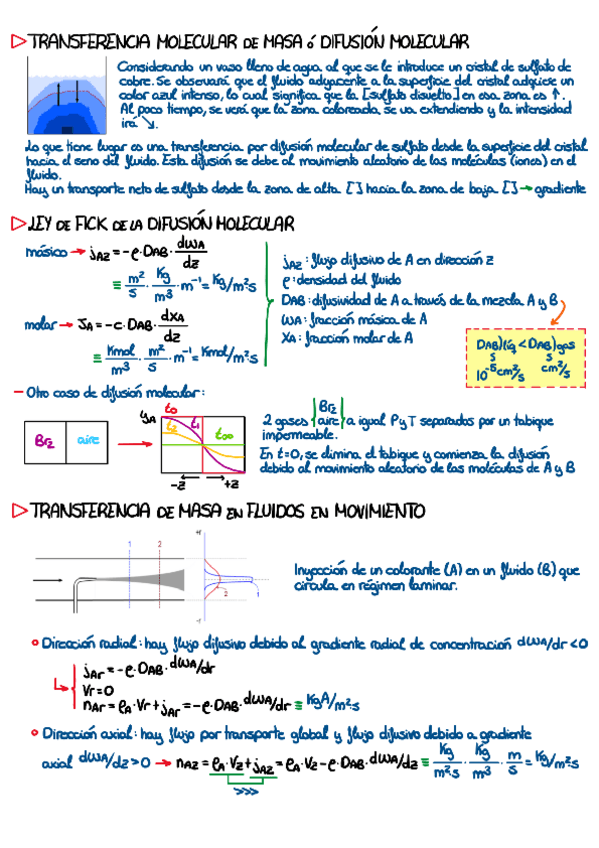 ▷ TRANSFERENCIA MOLECULAR DE MASA ó DIFUSIÓN MOLECULAR
Considerando un vaso lleno de agua al que se le introduce un cristal de sulfato de
cobre. Se observará que el fluido adyacente a la superficie del cristal adquiere un
color azul intenso, lo cual significa que la [sulfato disuelto] en esa zona es ↑.
Al poco tiempo, se verá que la zona coloreada se va extendiendo y la intensidad
irá ↘.
Lo que tiene lugar es una transferencia por difusión molecular de sulfato desde la superficie del cristal
hacia el seno del fluido. Esta difusión se debe al movimiento aleatorio de las moléculas (iones) en el
fluido.
Hay un transporte neto de sulfato desde la zona de alta [] hacia la zona de baja [] → gradiente
▷ LEY DE FICK DE LA DIFUSIÓN MOLECULAR
másico → jAZ = -ρ·DAB· dωA/dz
≡ m²/s · Kg/m³ · m⁻¹ = Kg/m²s
molar → JA = -c·DAB· dxA/dz
≡ Kmol/m³ · m²/s · m⁻¹ = Kmol/m²s
jAZ : flujo difusivo de A en dirección z
ρ : densidad del fluido
DAB : difusividad de A a través de la mezcla A y B
ωA : fracción másica de A
XA : fracción molar de A
DAB)líq < DAB)gas
10⁻⁵ cm²/s cm²/s
– Otro caso de difusión molecular:
Br2 aire
yA t0 t1 t2 t∞
-z +z
2 gases {Br2 aire} a igual P y T separados por un tabique
impermeable.
En t=0, se elimina el tabique y comienza la difusión
debido al movimiento aleatorio de las moléculas de A y B
▷ TRANSFERENCIA DE MASA EN FLUIDOS EN MOVIMIENTO
1 2
+r
2 1
-r
Inyección de un colorante (A) en un fluido (B) que
circula en régimen laminar.
Dirección radial: hay flujo difusivo debido al gradiente radial de concentración dωA/dr <0
jAr = -ρ·DAB·dωA/dr
Vr=0
nAr = ρA·Vr + jAr = -ρ·DAB·dωA/dr ≡ KgA/m²s
Dirección axial: hay flujo por transporte global y flujo difusivo debido a gradiente
axial dωA/dz >0 → nAZ = ρA·VZ + jAZ = ρA·VZ - ρ·DAB·dωA/dz ≡ Kg/m²s · Kg/m³ · m/s = Kg/m²s
>>>